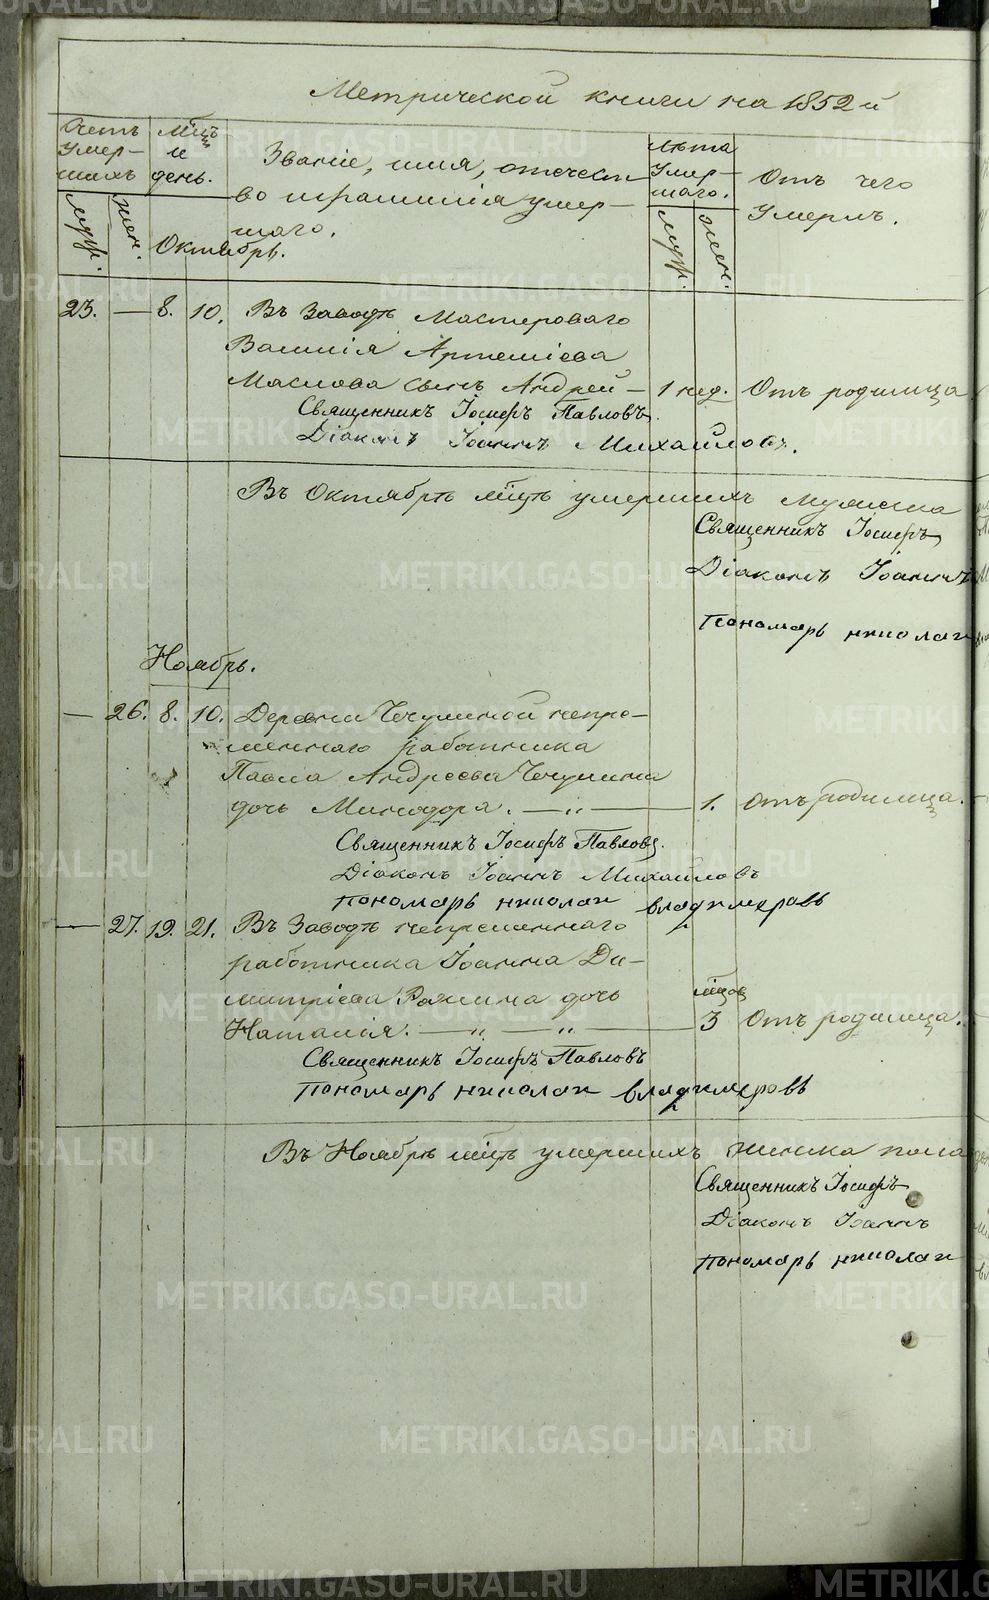 Метрической книги на 1852й
Счетъ умер-шихъ
Мцъ и день.
Званіе, имя, отечест
во и фамилія умер-
шаго.
Лѣта умер-шаго.
Отъ чего
умеръ.
муж.
жен.
Октябрь.
муж.
жен.
23. — 8. 10. Въ Заводѣ Мастероваго
Василія Артеміева
Маслова сынъ Андрей — 1 нед. Отъ родимца
Священникъ Іосифъ Павловъ.
Діаконъ Іоаннъ Михайловъ.
Въ Октябрѣ мцѣ умершихъ мужска
Священникъ Іосифъ
Діаконъ Іоаннъ
Пономарь Николай
Ноябрь.
— 26. 8. 10. Деревни Чечулиной непре-
меннаго работника
Павла Андреева Чечулина
дочь Минодора. — „ — 1. Отъ родимца.
Священникъ Іосифъ Павловъ.
Діаконъ Іоаннъ Михайловъ
Пономарь Николай Владимировъ
— 27. 19. 21. Въ Заводѣ непременнаго
работника Іоанна Ди-
митріева дочь мцов
Наталія. — „ — „ — 3 Отъ родимца.
Священникъ Іосифъ Павловъ
Пономарь Николай Владимировъ
Въ Ноябрѣ мцѣ умершихъ женска пола
Священникъ Іосифъ
Діаконъ Іоаннъ
Пономарь Николай
METRIKI.GASO-URAL.RU